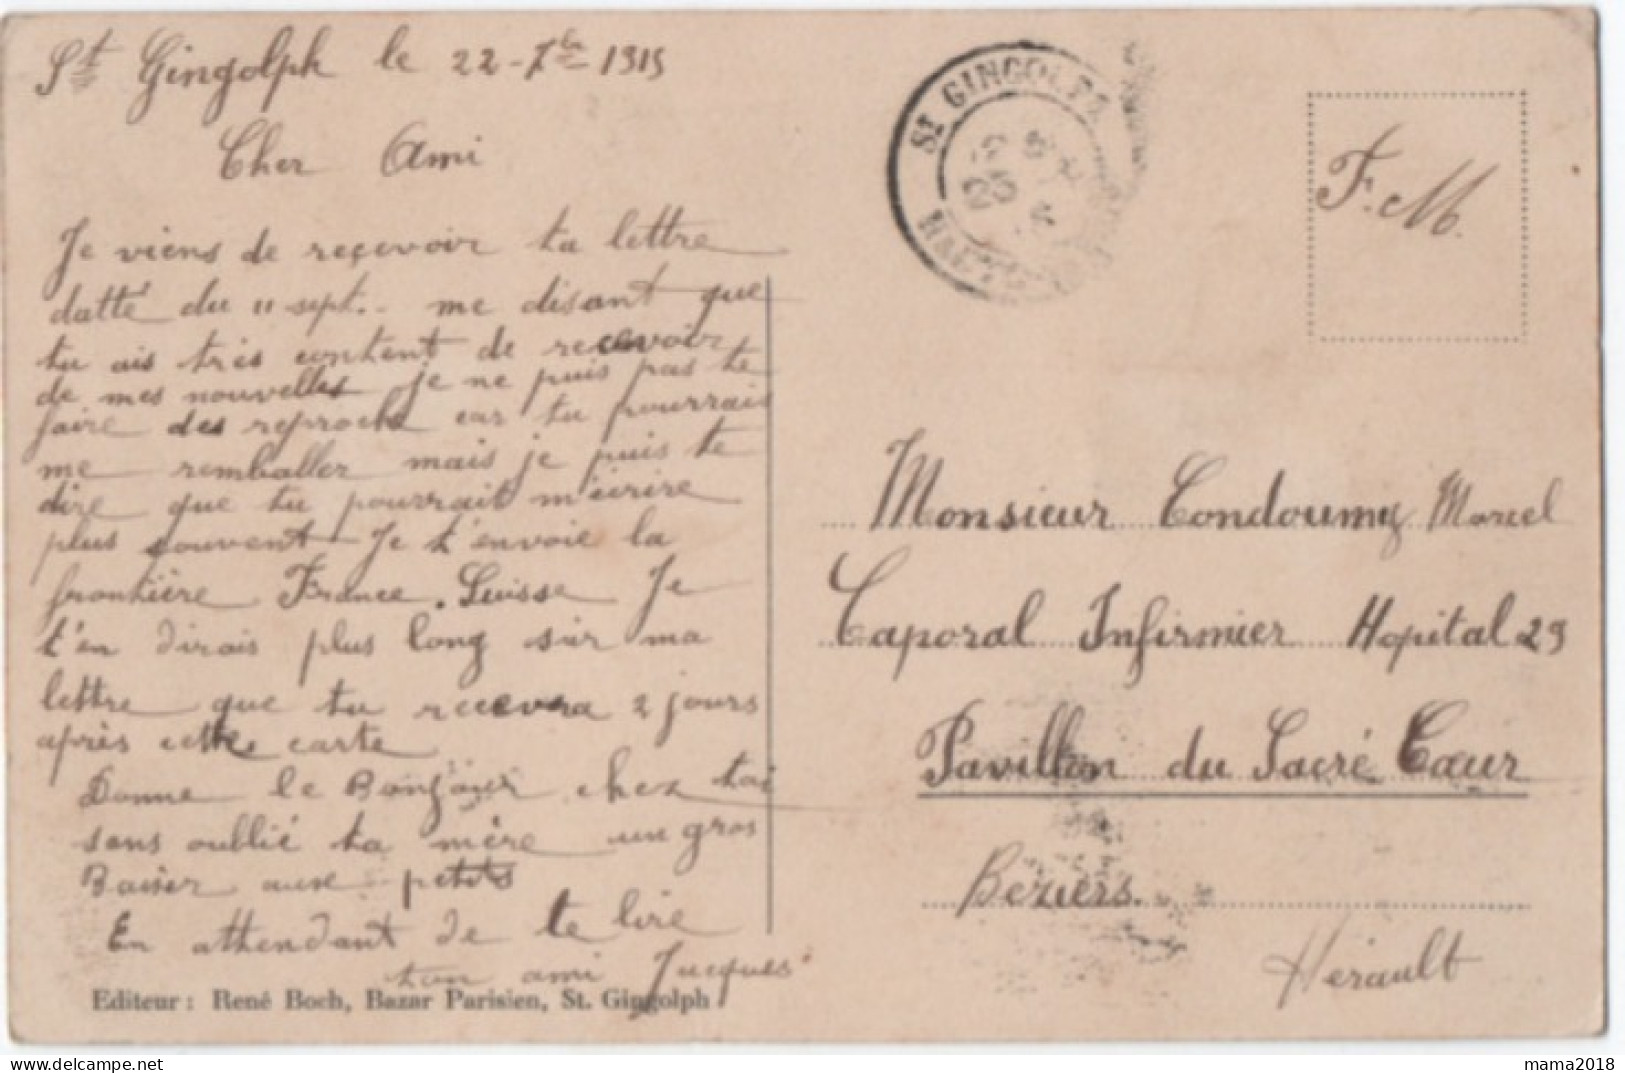 St Gingolph le 22-7bre 1915
Cher Ami
Je viens de reçevoir ta lettre
datté du 11 sept.. me disant que
tu ais très content de recevoir
de mes nouvelles je ne puis pas te
faire des reproche car tu pourrais
me remballer mais je puis te
dire que tu pourrait m'écrire
plus souvent Je t'envoie la
frontière France. Suisse Je
t'en dirais plus long sur ma
lettre que tu recevra 2 jours
après cette carte
Donne le Bonjour chez toi
sans oublié ta mère un gros
Baiser aux petits
En attendant de te lire
ton ami Jacques
Editeur: René Boch, Bazar Parisien, St. Gingolph
ST GINGOLPH
25
F. M.
Monsieur Condoumy Marcel
Caporal Infirmier Hopital 29
Pavillon du Sacré Cœur
Beziers.
Hérault
mama2018